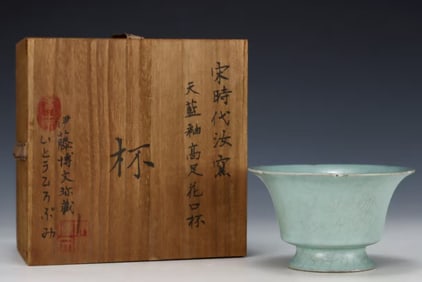 宋時代汝窯
天藍釉高足花口杯
杯
伊藤博文珍藏
いとうひろぶみ